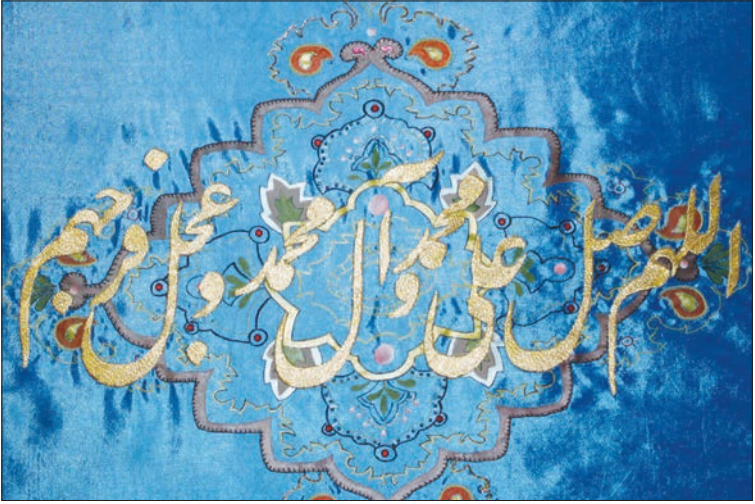 اللهم صل علی محمد و آل محمد و عجل فرجهم